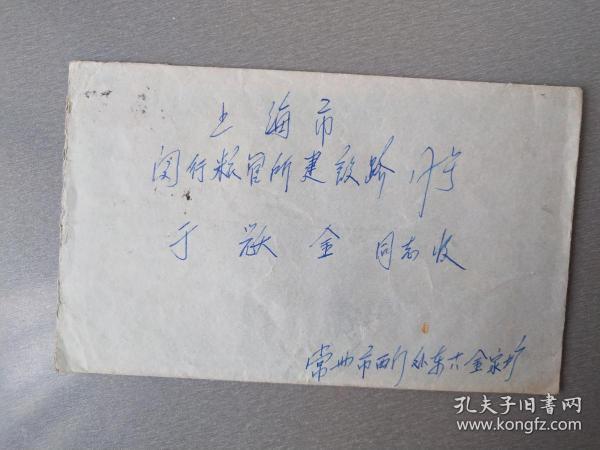 上海市
闵行粮管所建设路17号
于 金 同志收
常州市西门外东六金家圩
孔夫子旧书网
www.kongfz.com